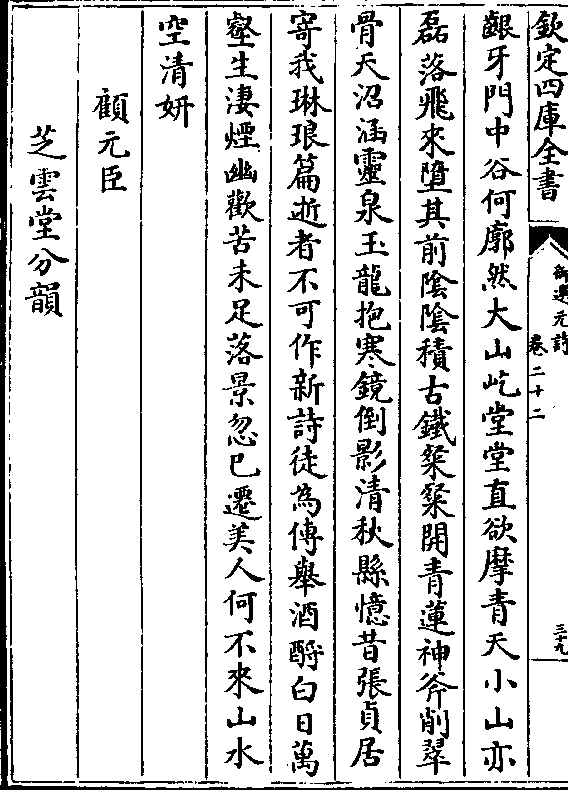 欽定四庫全書
御選元詩
卷二十二
三十九
齦牙門中谷何廓然大山屹堂堂直欲摩青天小山亦
磊落飛來墮其前陰陰積古鐵粲粲開青蓮神斧削翠
骨天沼涵靈泉玉龍抱寒鏡倒影清秋縣憶昔張貞居
寄我琳琅篇逝者不可作新詩徒為傳舉酒酹白日萬
壑生淒煙幽歡苦未足落景忽已遷美人何不來山水
空清妍
顧元臣
芝雲堂分韻